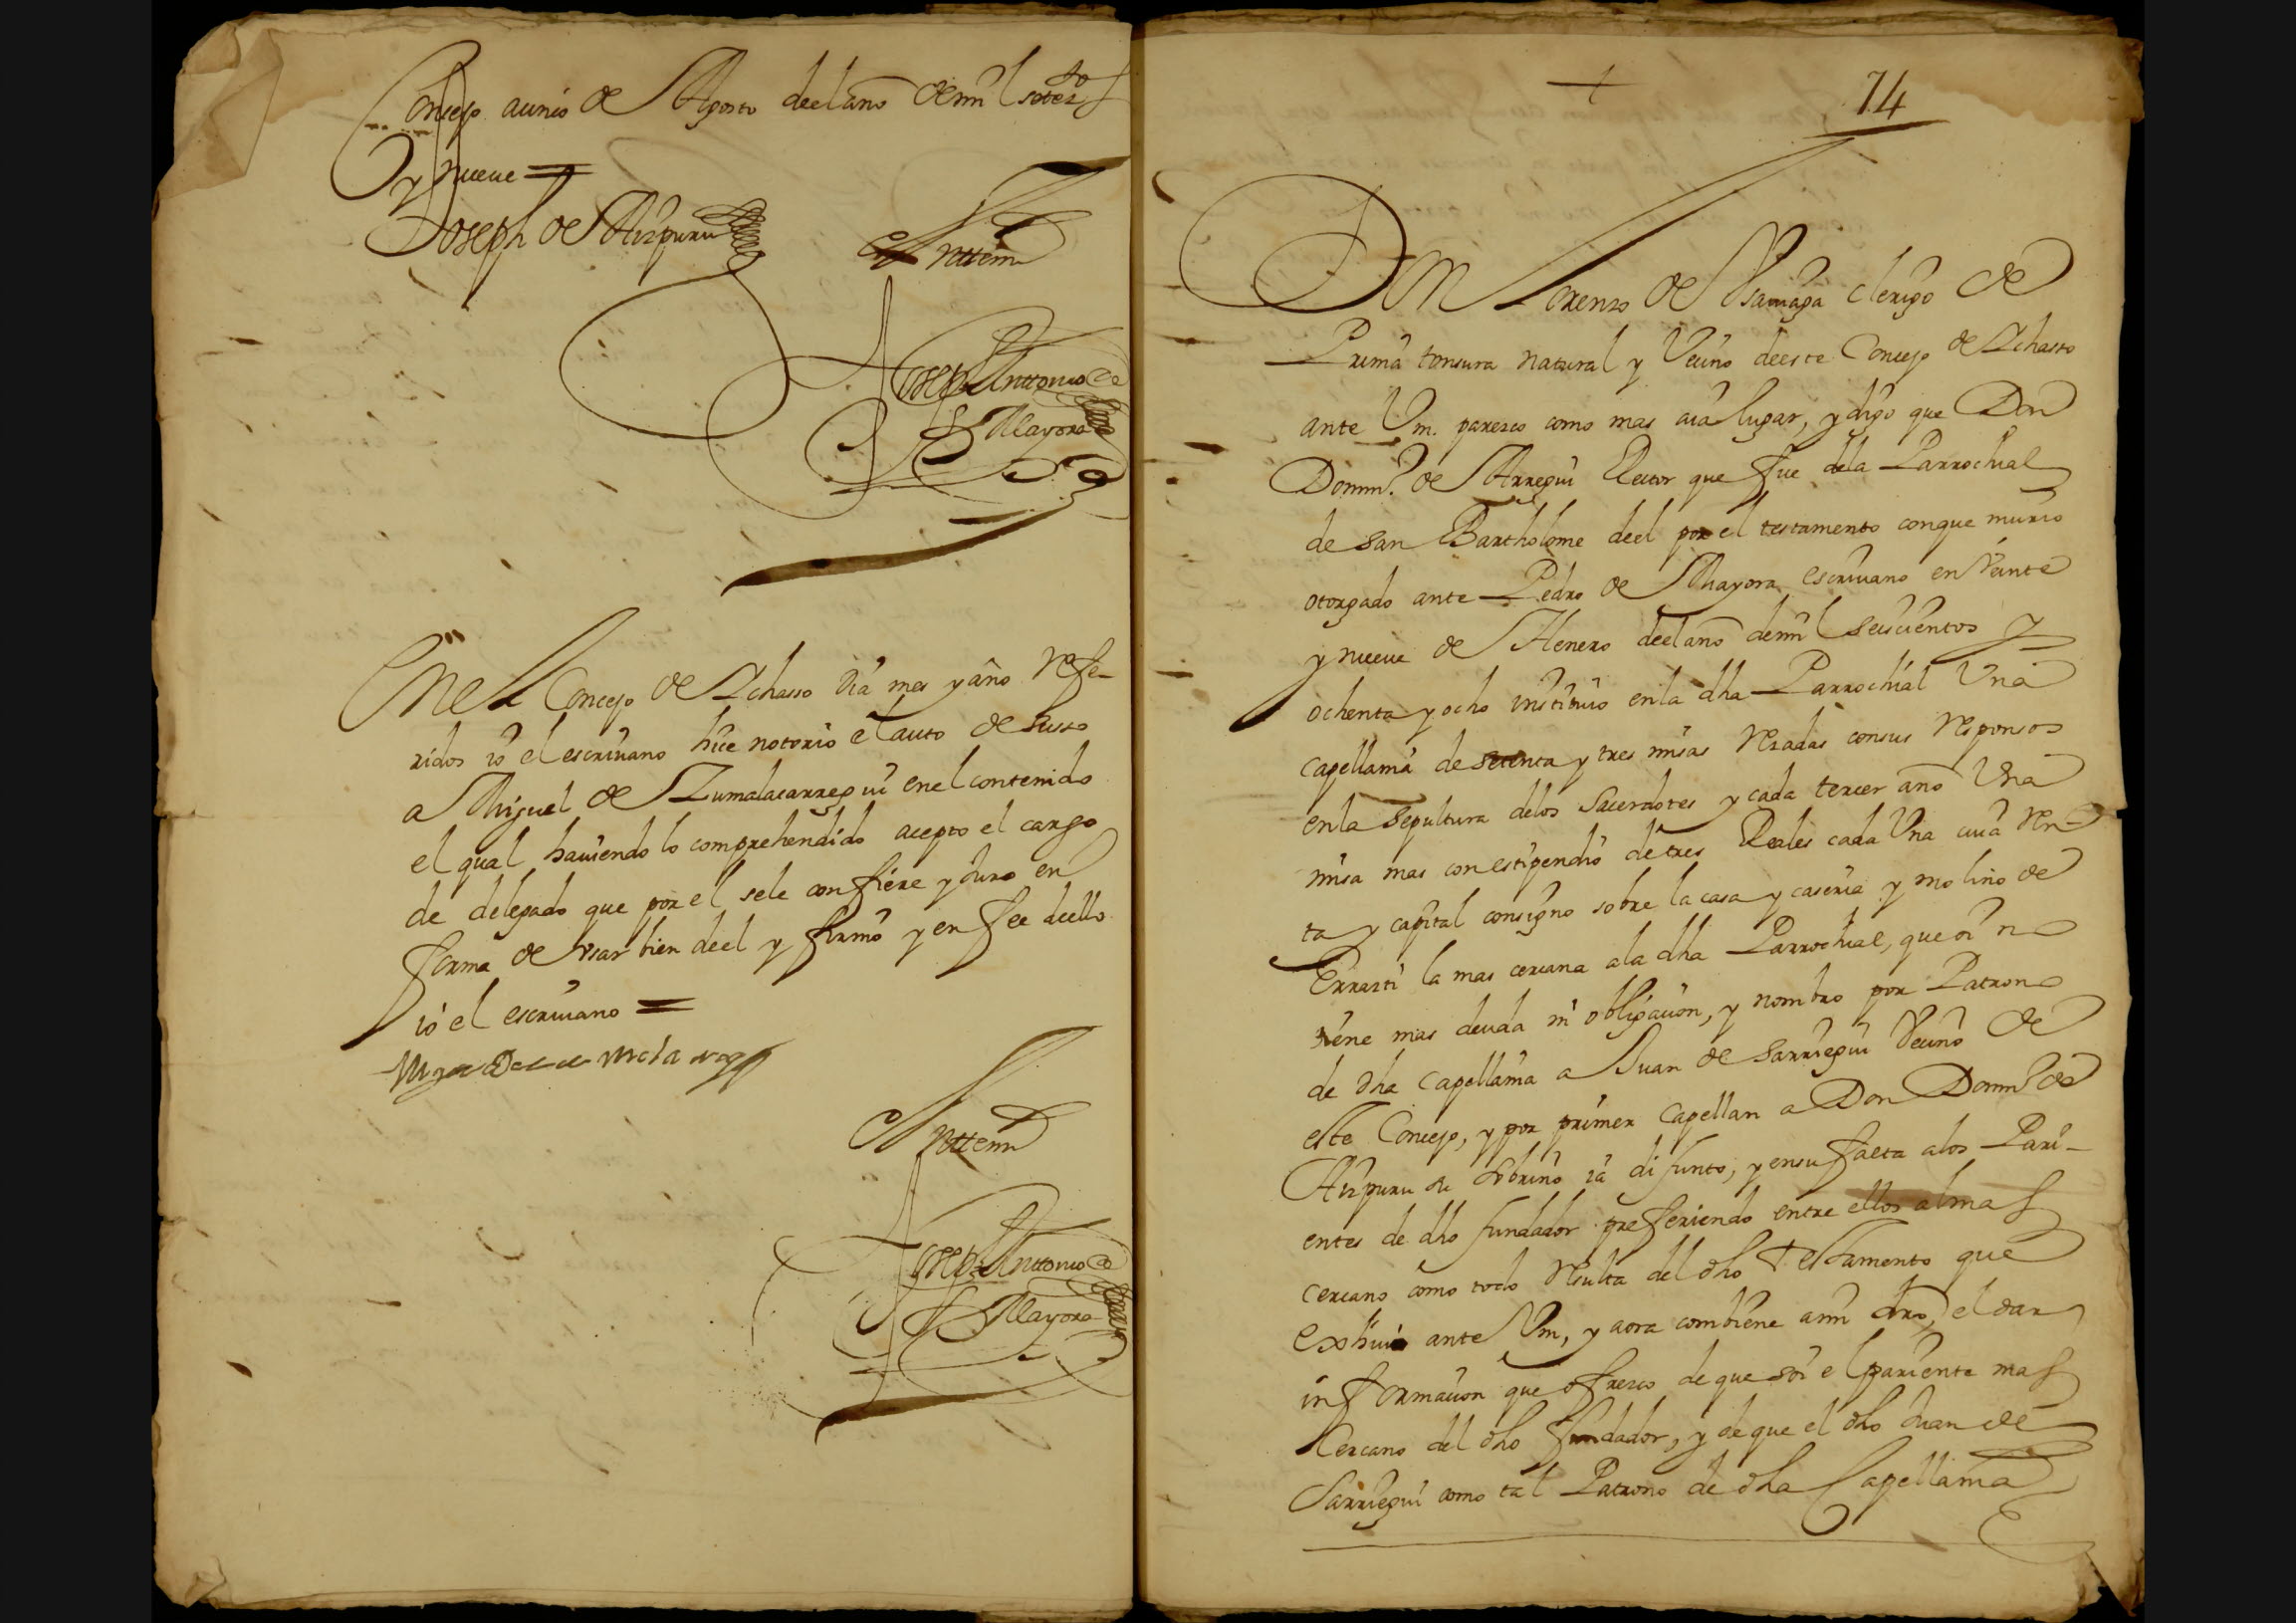 Concejo a cinco de Agosto deel año de mil setez.os
y nueue =
Joseph de Aizpuru
Anttemi
Joseph Anttonio de
Mayora
En el Concejo de Ichasso dia mes y año refe-
ridos io el escriuano hice notorio el auto de suso
a Miguel de Zumalacarregui en el contenido
el qual hauiendo lo comprehendido acepto el cargo
de delegado que por el sele confiere y Juro en
forma de vsar bien deel y firmo y en fee deello
io el escriuano =
Anttemi
Joseph Anttonio de
Mayora
+
74
Don Lorenzo de Vsaniaga clerigo de
Prima tonsura natural y Vecino deeste Concejo de Ichasso
ante Vm. paresco como mas aia lugar, y digo que Don
Domin.o de Arregui Rector que fue dela Parrochial
de san Bartholome deel por el testamento conque murio
otorgado ante Pedro de Mayora escriuano en Veinte
y nueue de Henero deel año de mil seiscientos y
ochenta y ocho instituio en la dha Parrochial Vna
capellania de setenta y tres misas rezadas con sus responsos
en la sepultura delos Sacerdotes y cada tercer año Vna
misa mas con estipendio de tres Reales cada Vna cuia ren-
ta y capital consigno sobre la casa y caseria y molino de
Errazti la mas cercana ala dha Parrochial, que oi no
tiene mas deuda ni obligacion, y nombro por Patrono
de dha capellania a Juan de Sarriegui Vecino de
este Concejo, y por primer capellan a Don Domin.o de
Aizpuru su sobrino ia difunto, y en su falta alos Pari-
entes de dho fundador prefiriendo entre ellos al mas
cercano como todo resulta del dho testamento que
exhiuio ante Vm, y aora combiene a mi dro, el dar
informacion que ofresco de que soi el pariente mas
Cercano del dho fundador, y de que el dho Juan de
Sarriegui como tal Patrono de dha Capellania